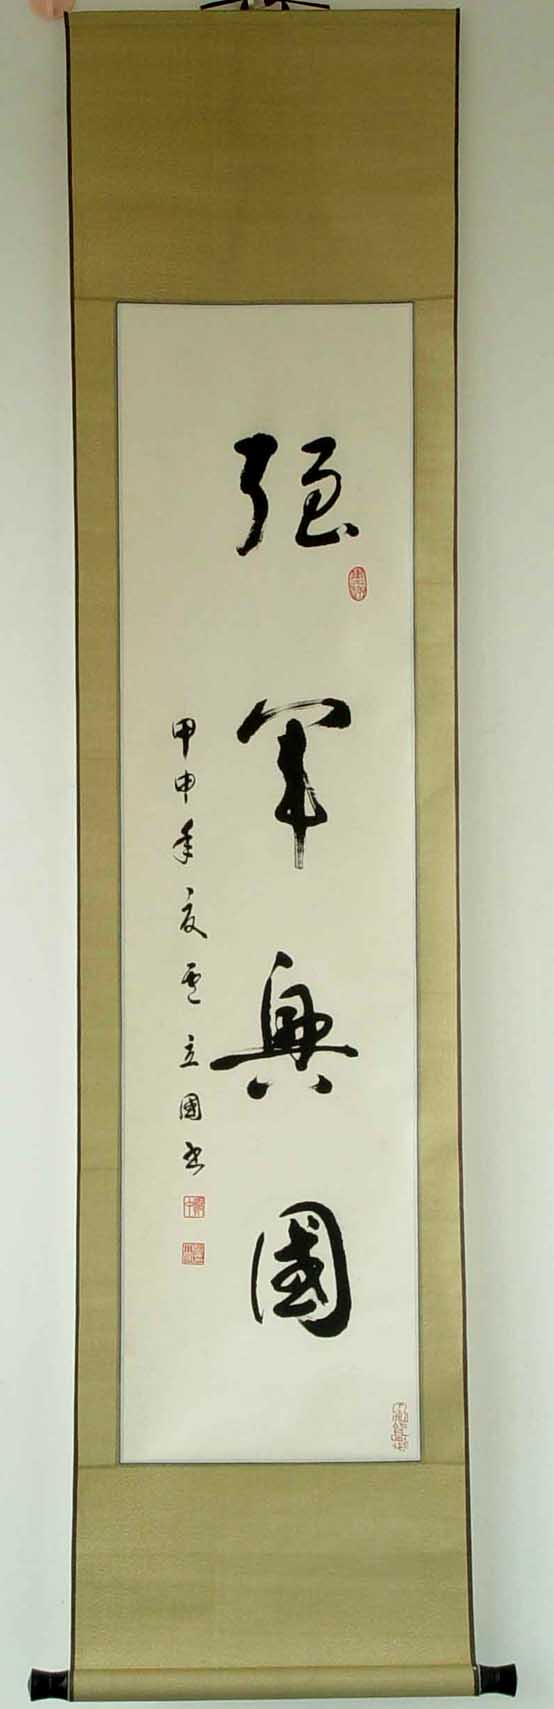 强軍興國
甲申年夏 立國書